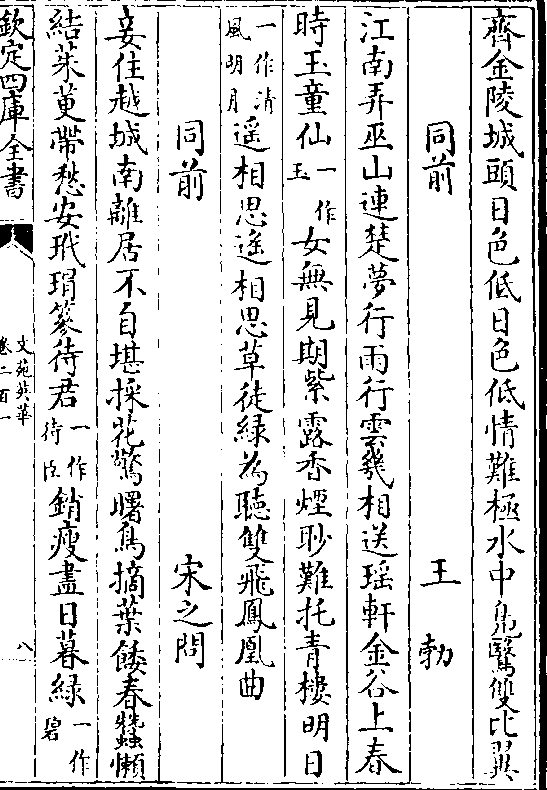 齊金陵城頭日色低日色低情難極水中鳬鷖雙比翼
同前 王勃
江南弄巫山連楚夢行雨行雲幾相送瑶軒金谷上春
時玉童仙一作玉女無見期紫露香煙眇難托青樓明日
一作清風明月遥相思遥相思草徒緑為聽雙飛鳳凰曲
同前 宋之問
妾住越城南離居不自堪採花驚曙鳥摘葉餧春蠶懶
結茱萸帶愁安玳瑁簪待君一作侍臣銷瘦盡日暮緑一作碧
欽定四庫全書
文苑英華
卷二百一
八